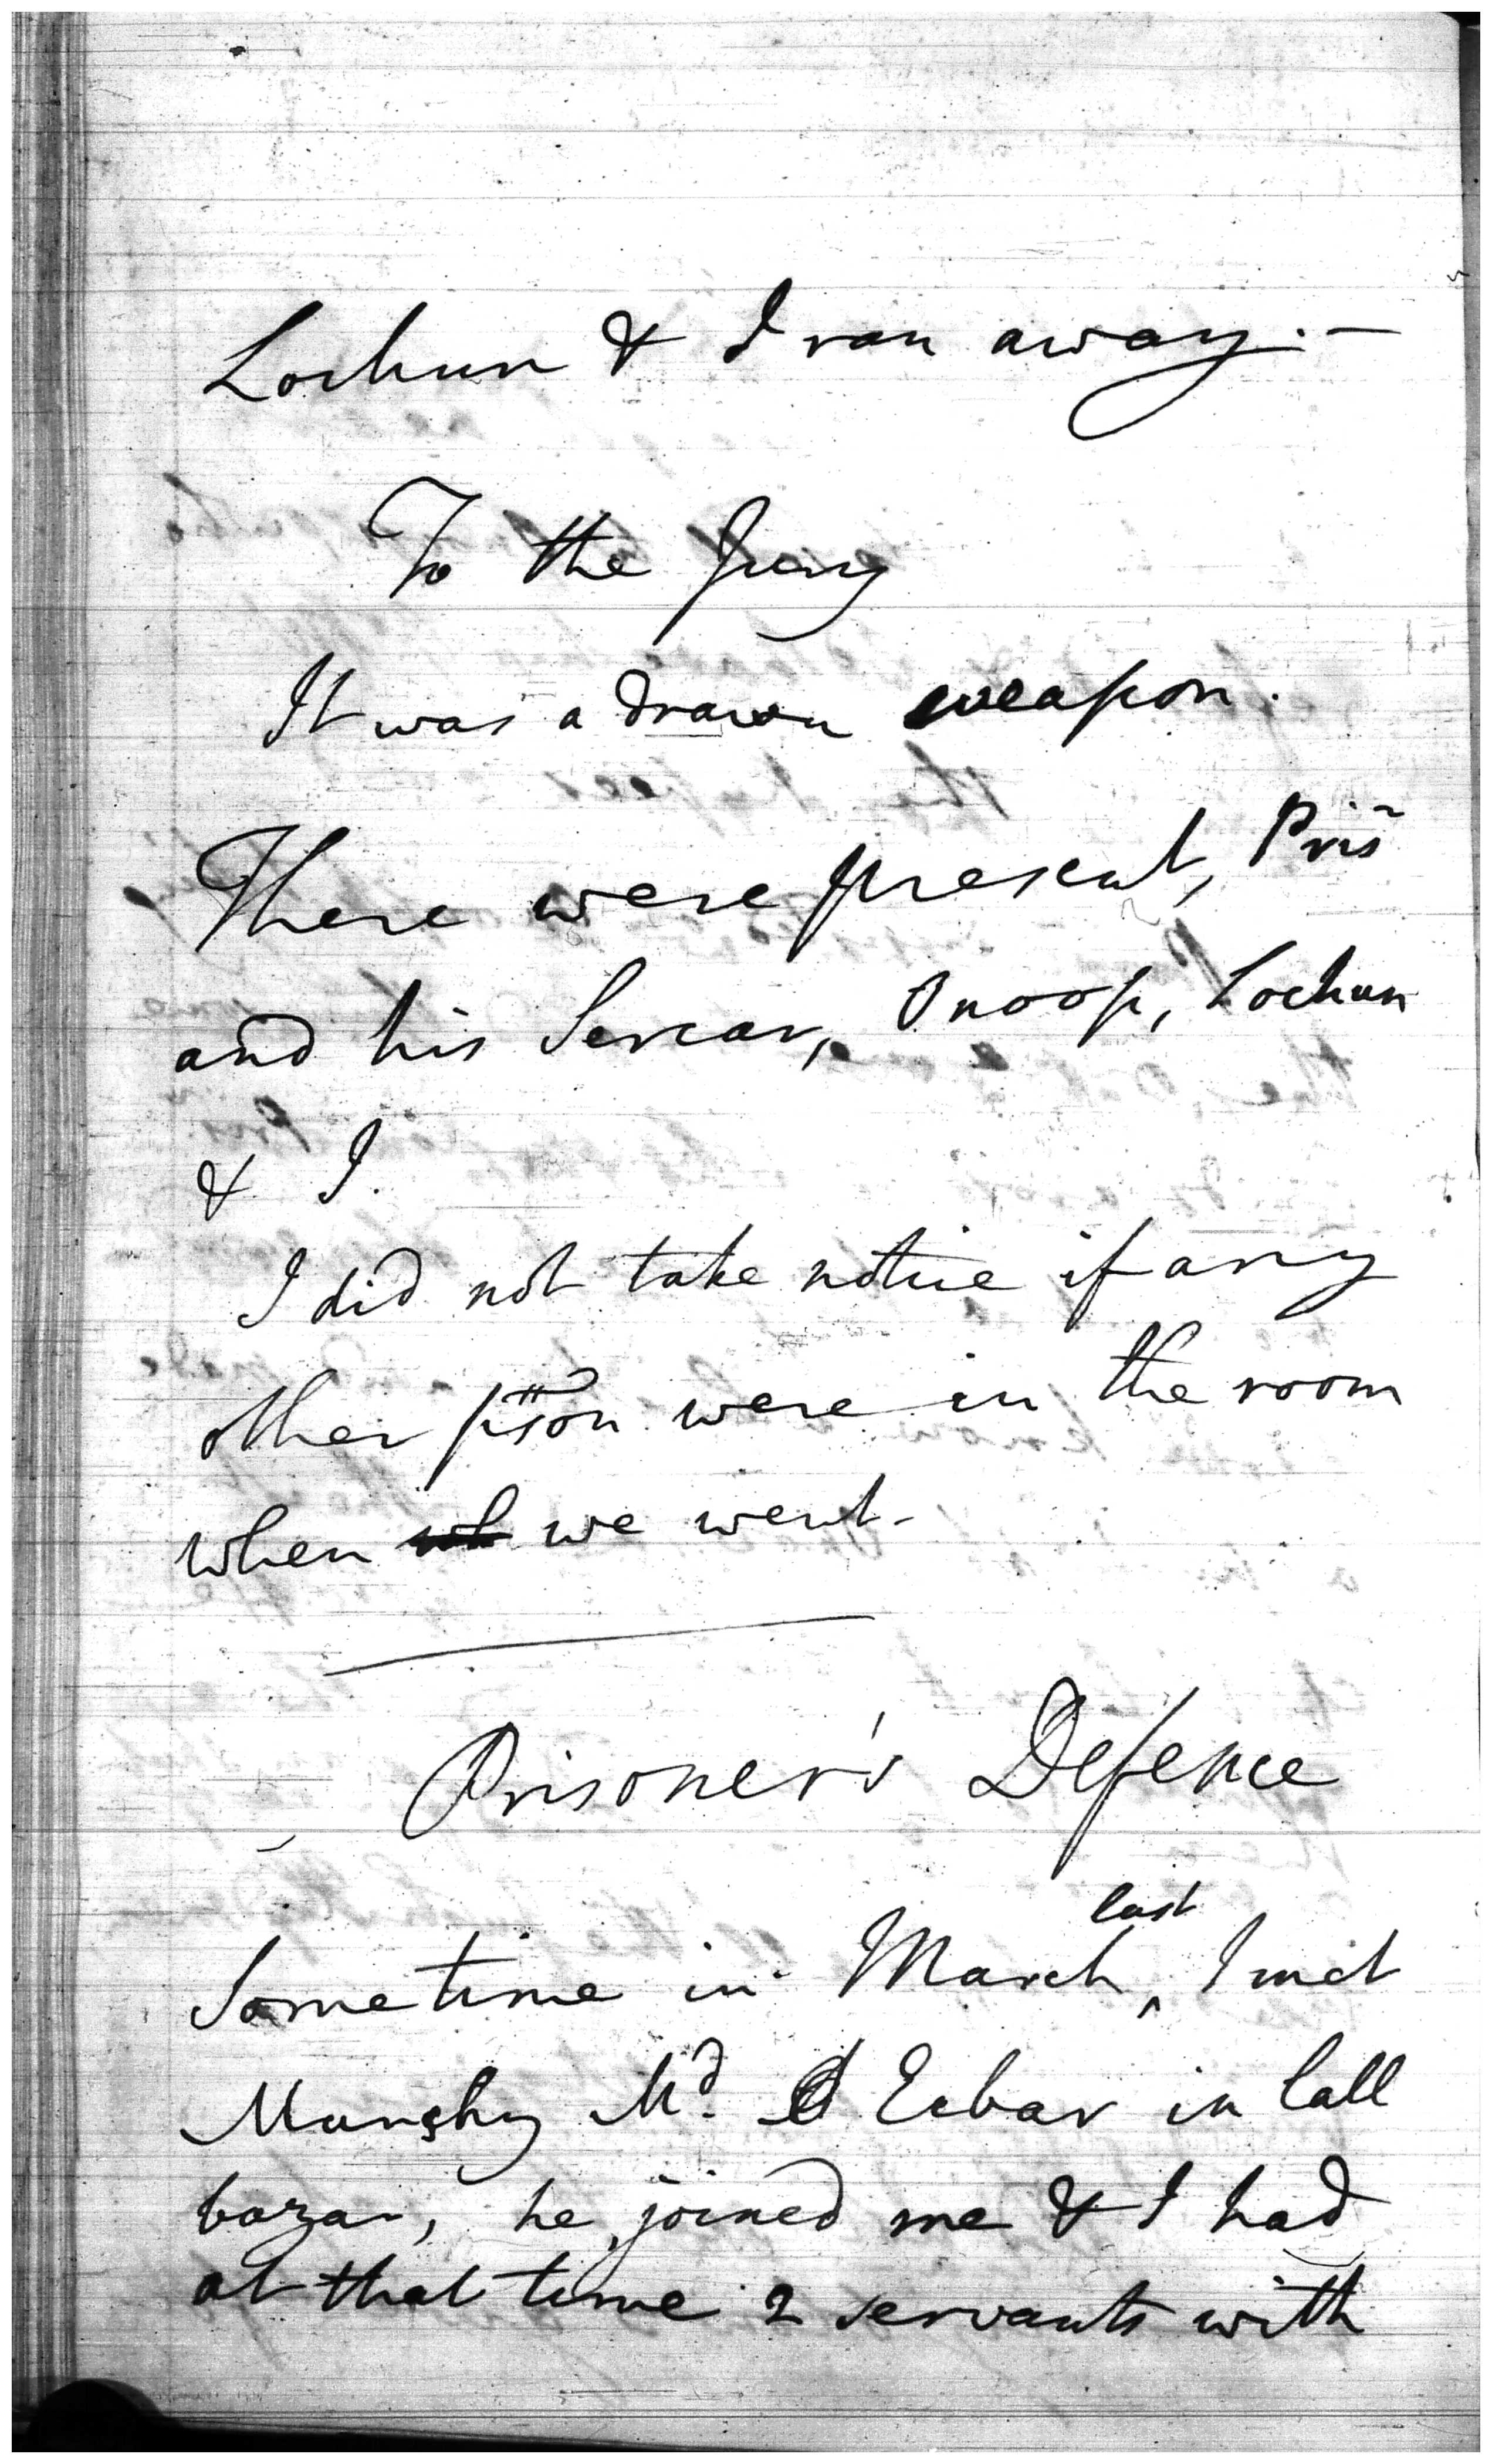 Lochun & I ran away. —
To the Jury
It was a drawn weapon.
There were present, Pris
and his Sercar, Onoop, Lochun
& I.
I did not take notice if any
other pson were in the room
when we went.
Prisoner's Defence
Sometime in March last, I met
Munshy Md. Ecbar in Lall
bazar, he joined me & I had
at that time 2 servants with